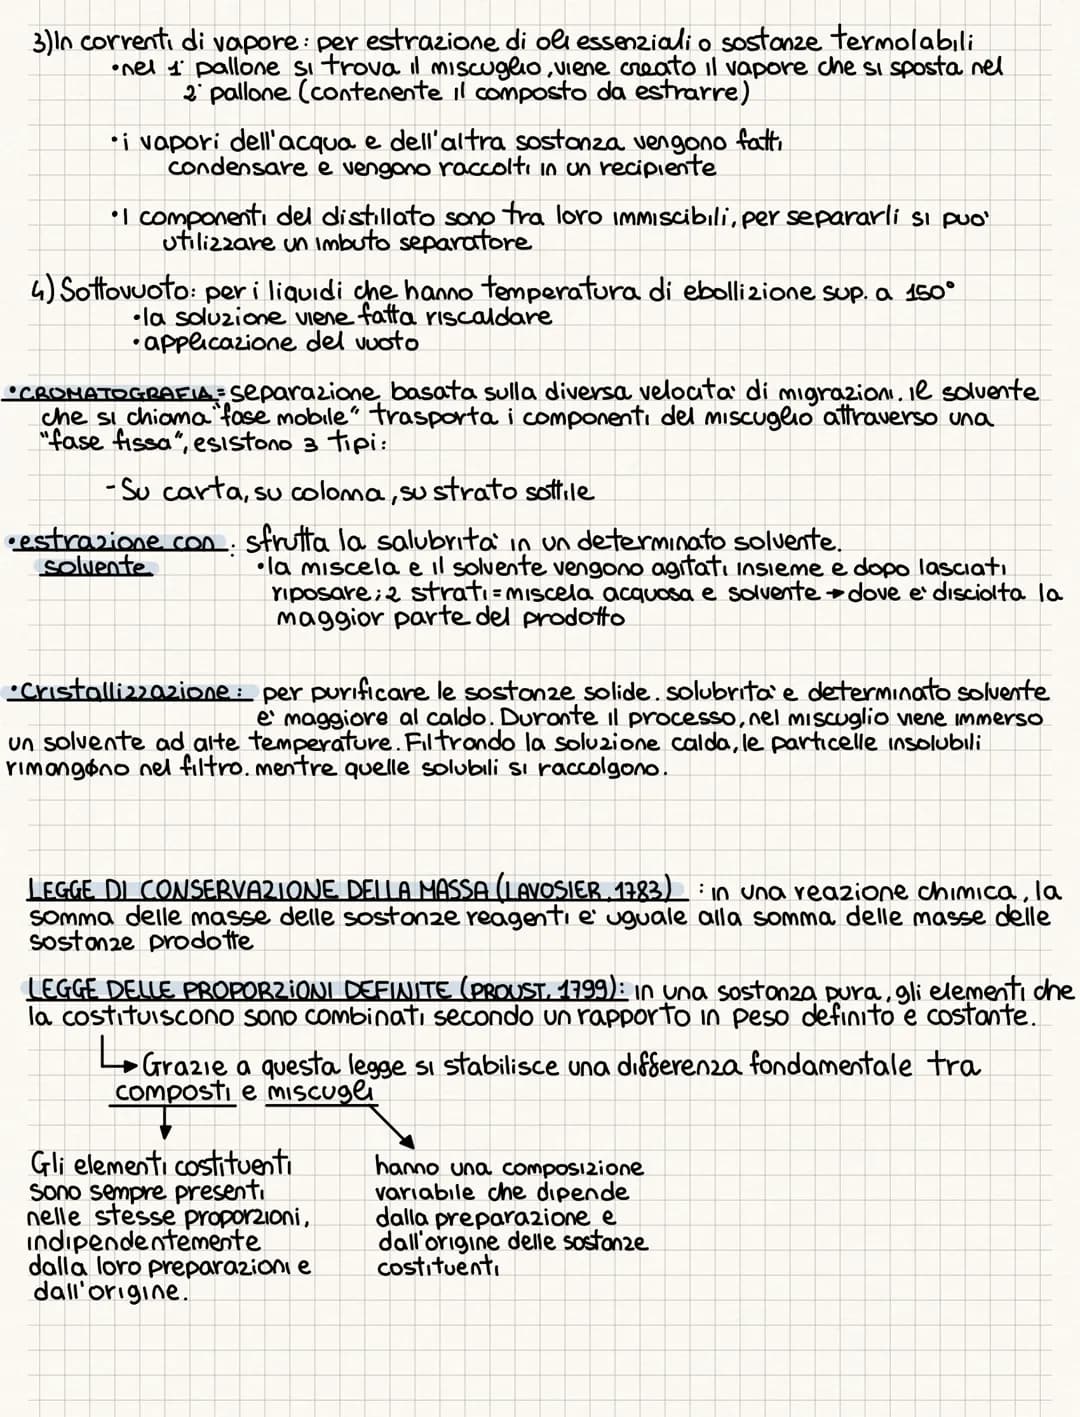 3)In correnti di vapore: per estrazione di oli essenziali o sostanze termolabili
•nel 1° pallone si trova il miscuglio, viene creato il vapore che si sposta nel
2° pallone (contenente il composto da estrarre)
•i vapori dell'acqua e dell'altra sostanza vengono fatti
condensare e vengono raccolti in un recipiente
•I componenti del distillato sono tra loro immiscibili, per separarli si puo'
utilizzare un imbuto separatore
4) Sottovuoto: per i liquidi che hanno temperatura di ebollizione sup. a 150°
•la soluzione viene fatta riscaldare
•applicazione del vuoto
•CROMATOGRAFIA= separazione basata sulla diversa velocita' di migrazioni. il solvente
che si chiama "fase mobile" trasporta i componenti del miscuglio attraverso una
"fase fissa", esistono 3 tipi:
-Su carta, su coloma, su strato sottile
•estrazione con : sfrutta la salubrita' in un determinato solvente.
solvente •la miscela e il solvente vengono agitati insieme e dopo lasciati
riposare; 2 strati = miscela acquosa e solvente → dove e' disciolta la
maggior parte del prodotto
•Cristallizzazione: per purificare le sostanze solide. solubrita' e determinato solvente
e' maggiore al caldo. Durante il processo, nel miscuglio viene immerso
un solvente ad alte temperature. Filtrando la soluzione calda, le particelle insolubili
rimangono nel filtro. mentre quelle solubili si raccolgono.
LEGGE DI CONSERVAZIONE DELLA MASSA (LAVOSIER, 1783) : in una reazione chimica, la
somma delle masse delle sostanze reagenti e' uguale alla somma delle masse delle
sostanze prodotte
LEGGE DELLE PROPORZIONI DEFINITE (PROUST, 1799): in una sostanza pura, gli elementi che
la costituiscono sono combinati secondo un rapporto in peso definito e costante.
→ Grazie a questa legge si stabilisce una differenza fondamentale tra
composti e miscugli
Gli elementi costituenti
sono sempre presenti
nelle stesse proporzioni,
indipendentemente
dalla loro preparazioni e
dall'origine.
hanno una composizione
variabile che dipende
dalla preparazione e
dall'origine delle sostanze
costituenti